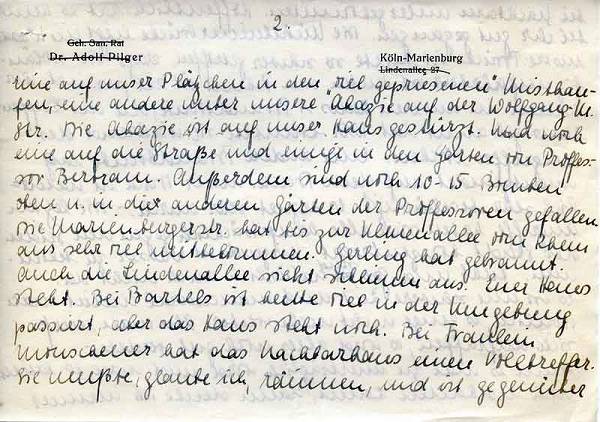 2.
Geh. San. Rat
Dr. Adolf Pilger
Köln-Marienburg
Lindenallee 27
eine auf unser Plätzchen in den „viel gepriesenen" Misthau-
fen, eine andere unter unsere Akazie auf der Wolfgang-M.
Str. Die Akazie ist auf unser Haus gestürzt. Und noch
eine auf die Straße und einige in den Garten von Profes-
sor Bertram. Außerdem sind noch 10-15 Bomben
in die anderen Gärten der Professoren gefallen.
Die Marienburgerstr. hat bis zur Ulmenallee vom Rhein
aus sehr viel mitbekommen. Gerling hat gebrannt.
Auch die Lindenallee sieht schlimm aus. Euer Haus
steht. Bei Bartels ist heute viel in der Umgebung
passiert, aber das Haus steht noch. Bei Fräulein
hat das Nachbarhaus einen Volltreffer.
Sie mußte, glaube ich, räumen, und ist gegenüber